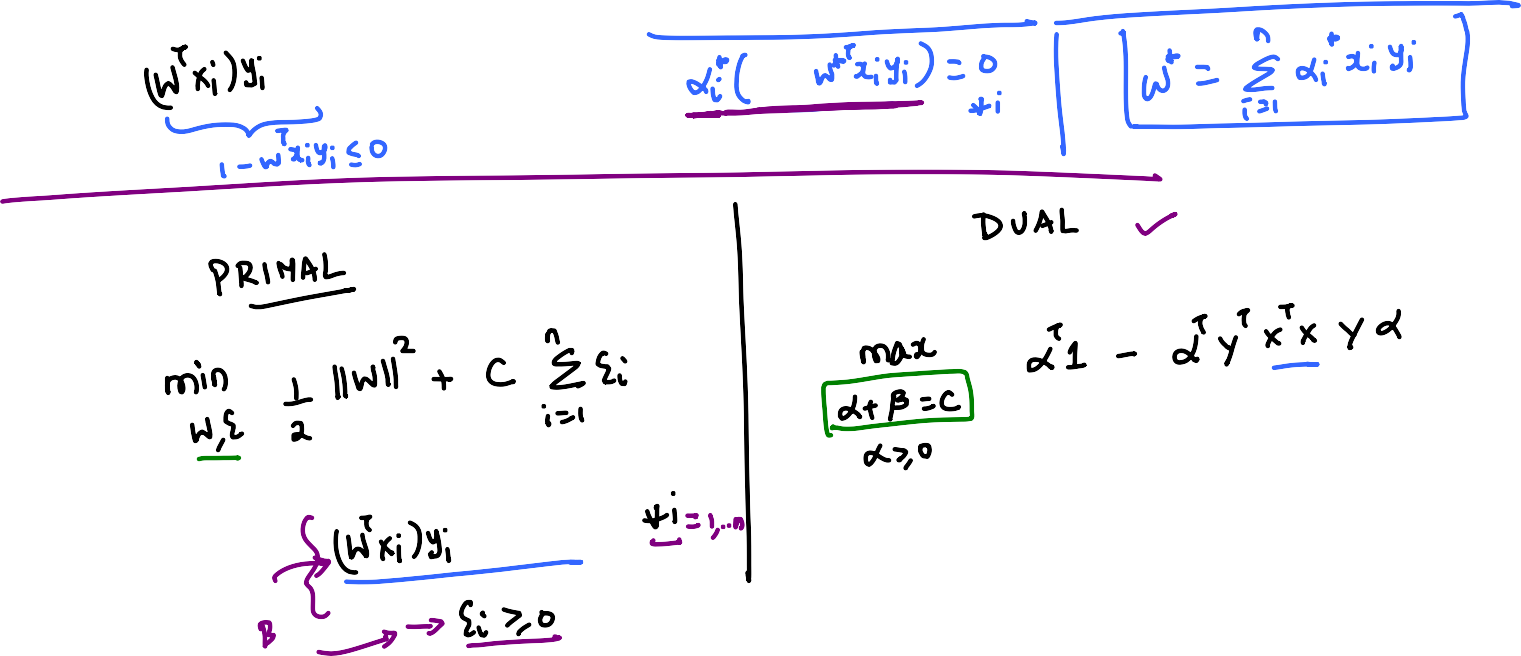 (wᵀxᵢ)yᵢ
1 - wᵀxᵢyᵢ ≤ 0
αᵢ*( w*ᵀxᵢyᵢ) = 0
∀i
w* = Σᵢ₌₁ⁿ αᵢ* xᵢ yᵢ
PRIMAL
min 1/2 ||w||² + C Σᵢ₌₁ⁿ ξᵢ
w,ξ
(wᵀxᵢ)yᵢ ∀i = 1,..n
B → ξᵢ ≥ 0
DUAL ✓
max αᵀ1 - αᵀYᵀXᵀXYα
α + β = C
α ≥ 0